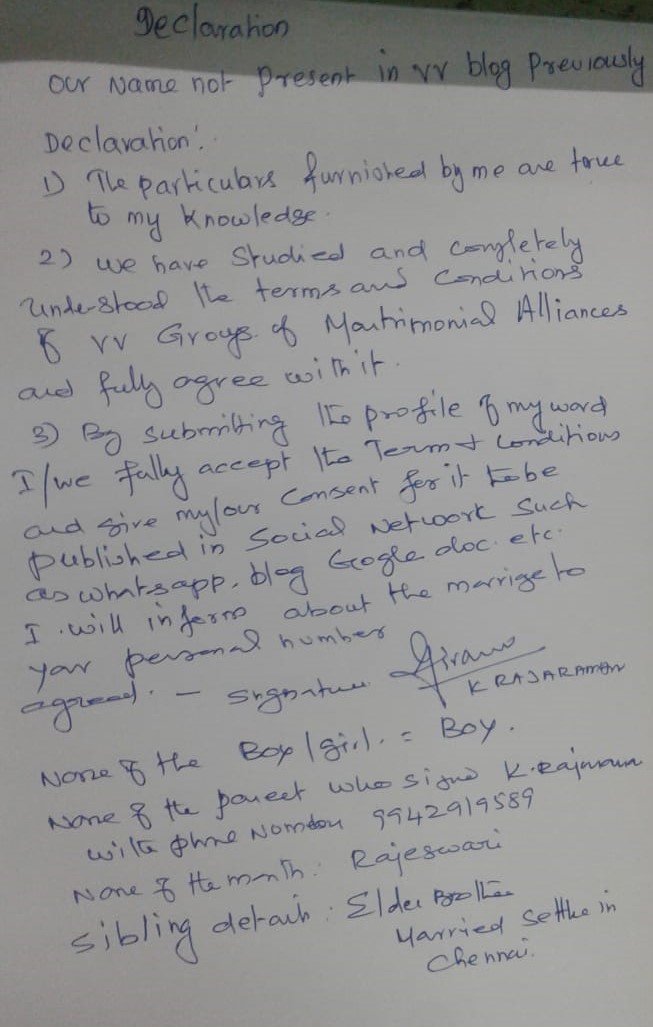 Declaration
our Name not present in vv blog previously
Declaration:
1) The particulars furnished by me are true
to my knowledge.
2) we have Studied and completely
Understood the terms and Conditions
of vv Groups of Matrimonial Alliances
and fully agree with it.
3) By submitting the profile of my word
I/we fully accept the Term & Conditions
and give my/our Consent for it to be
published in Social Network Such
as whatsapp, blog Google doc. etc.
I will inform about the marrige to
your personal number
agreed. - Signature
K RAJARAMAN
Name of the Boy/girl. = Boy.
Name of the parent who signs K.Rajaraman
with phone Number 9942919589
Name of the : Rajeswari
sibling details : Elder Brother
Married Settle in
Chennai.